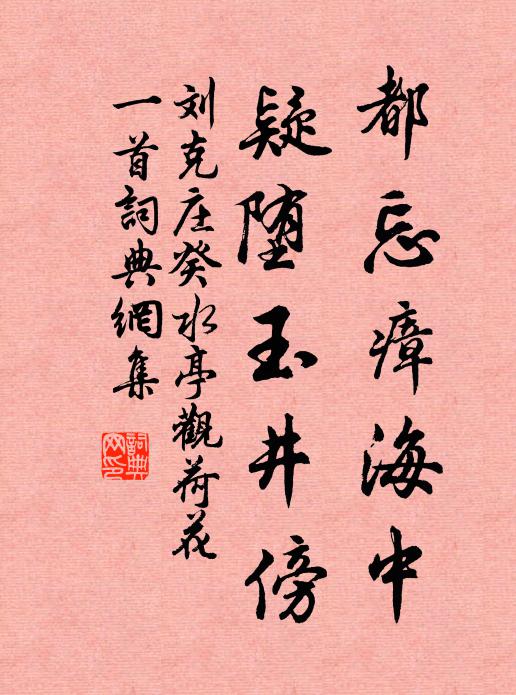 都忘瘴海中
疑堕玉井傍
刘克庄癸水亭觀荷花
一首詞典網集
詞典網印